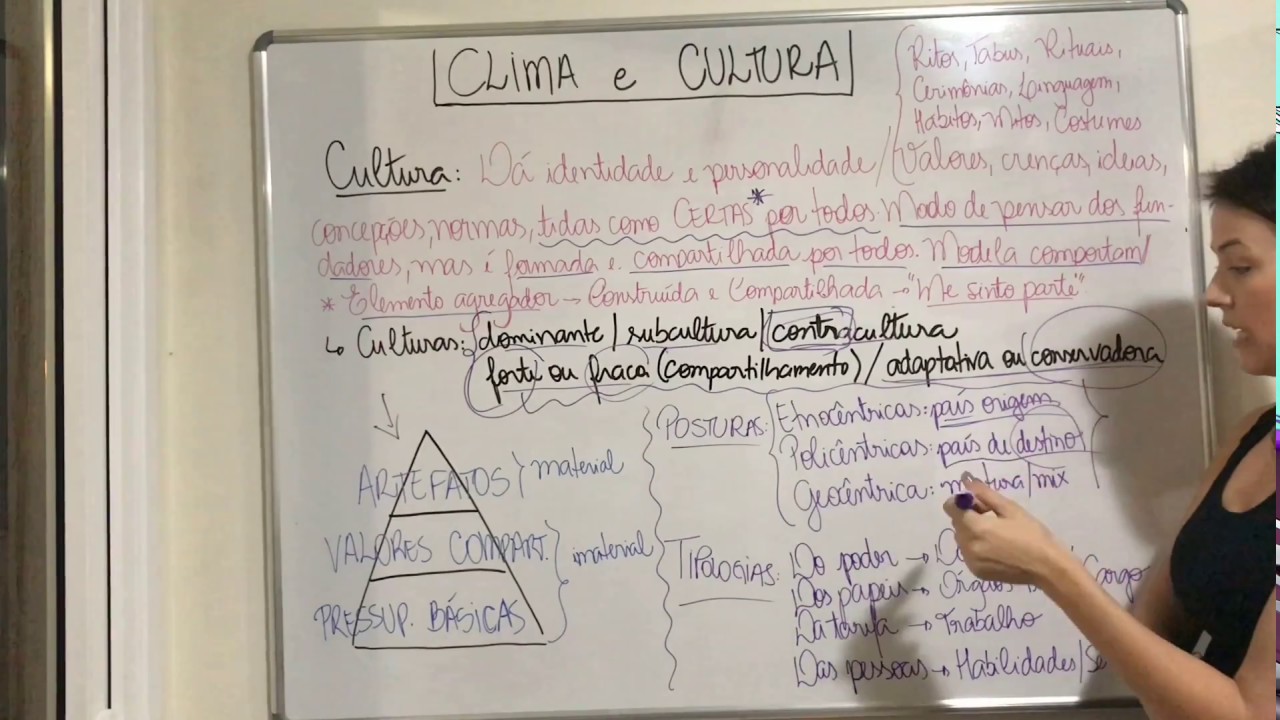 CLIMA e CULTURA
Ritos, Tabus, Rituais,
Cerimônias, Linguagem,
Hábitos, Mitos, Costumes
Cultura: Dá identidade e personalidade / Valores, crenças, ideias,
concepções, normas, tidas como CERTAS* por todos. Modo de pensar dos fun-
dadores, mas é formada e compartilhada por todos. Modela comportam/
* Elemento agregador → Construída e Compartilhada → "Me sinto parte"
↳ Culturas: dominante / subcultura / contracultura
forte ou fraca (compartilhamento) / adaptativa ou conservadora
ARTEFATOS } material
VALORES COMPART.
PRESSUP. BÁSICAS
} material
POSTURAS: Etnocêntricas: país origem
Policêntricas: país de destino
Geocêntrica: /mix
TIPOLOGIAS: Do poder →
Dos papéis → Cargo
Da tarefa → Trabalho
Das pessoas → Habilidades/